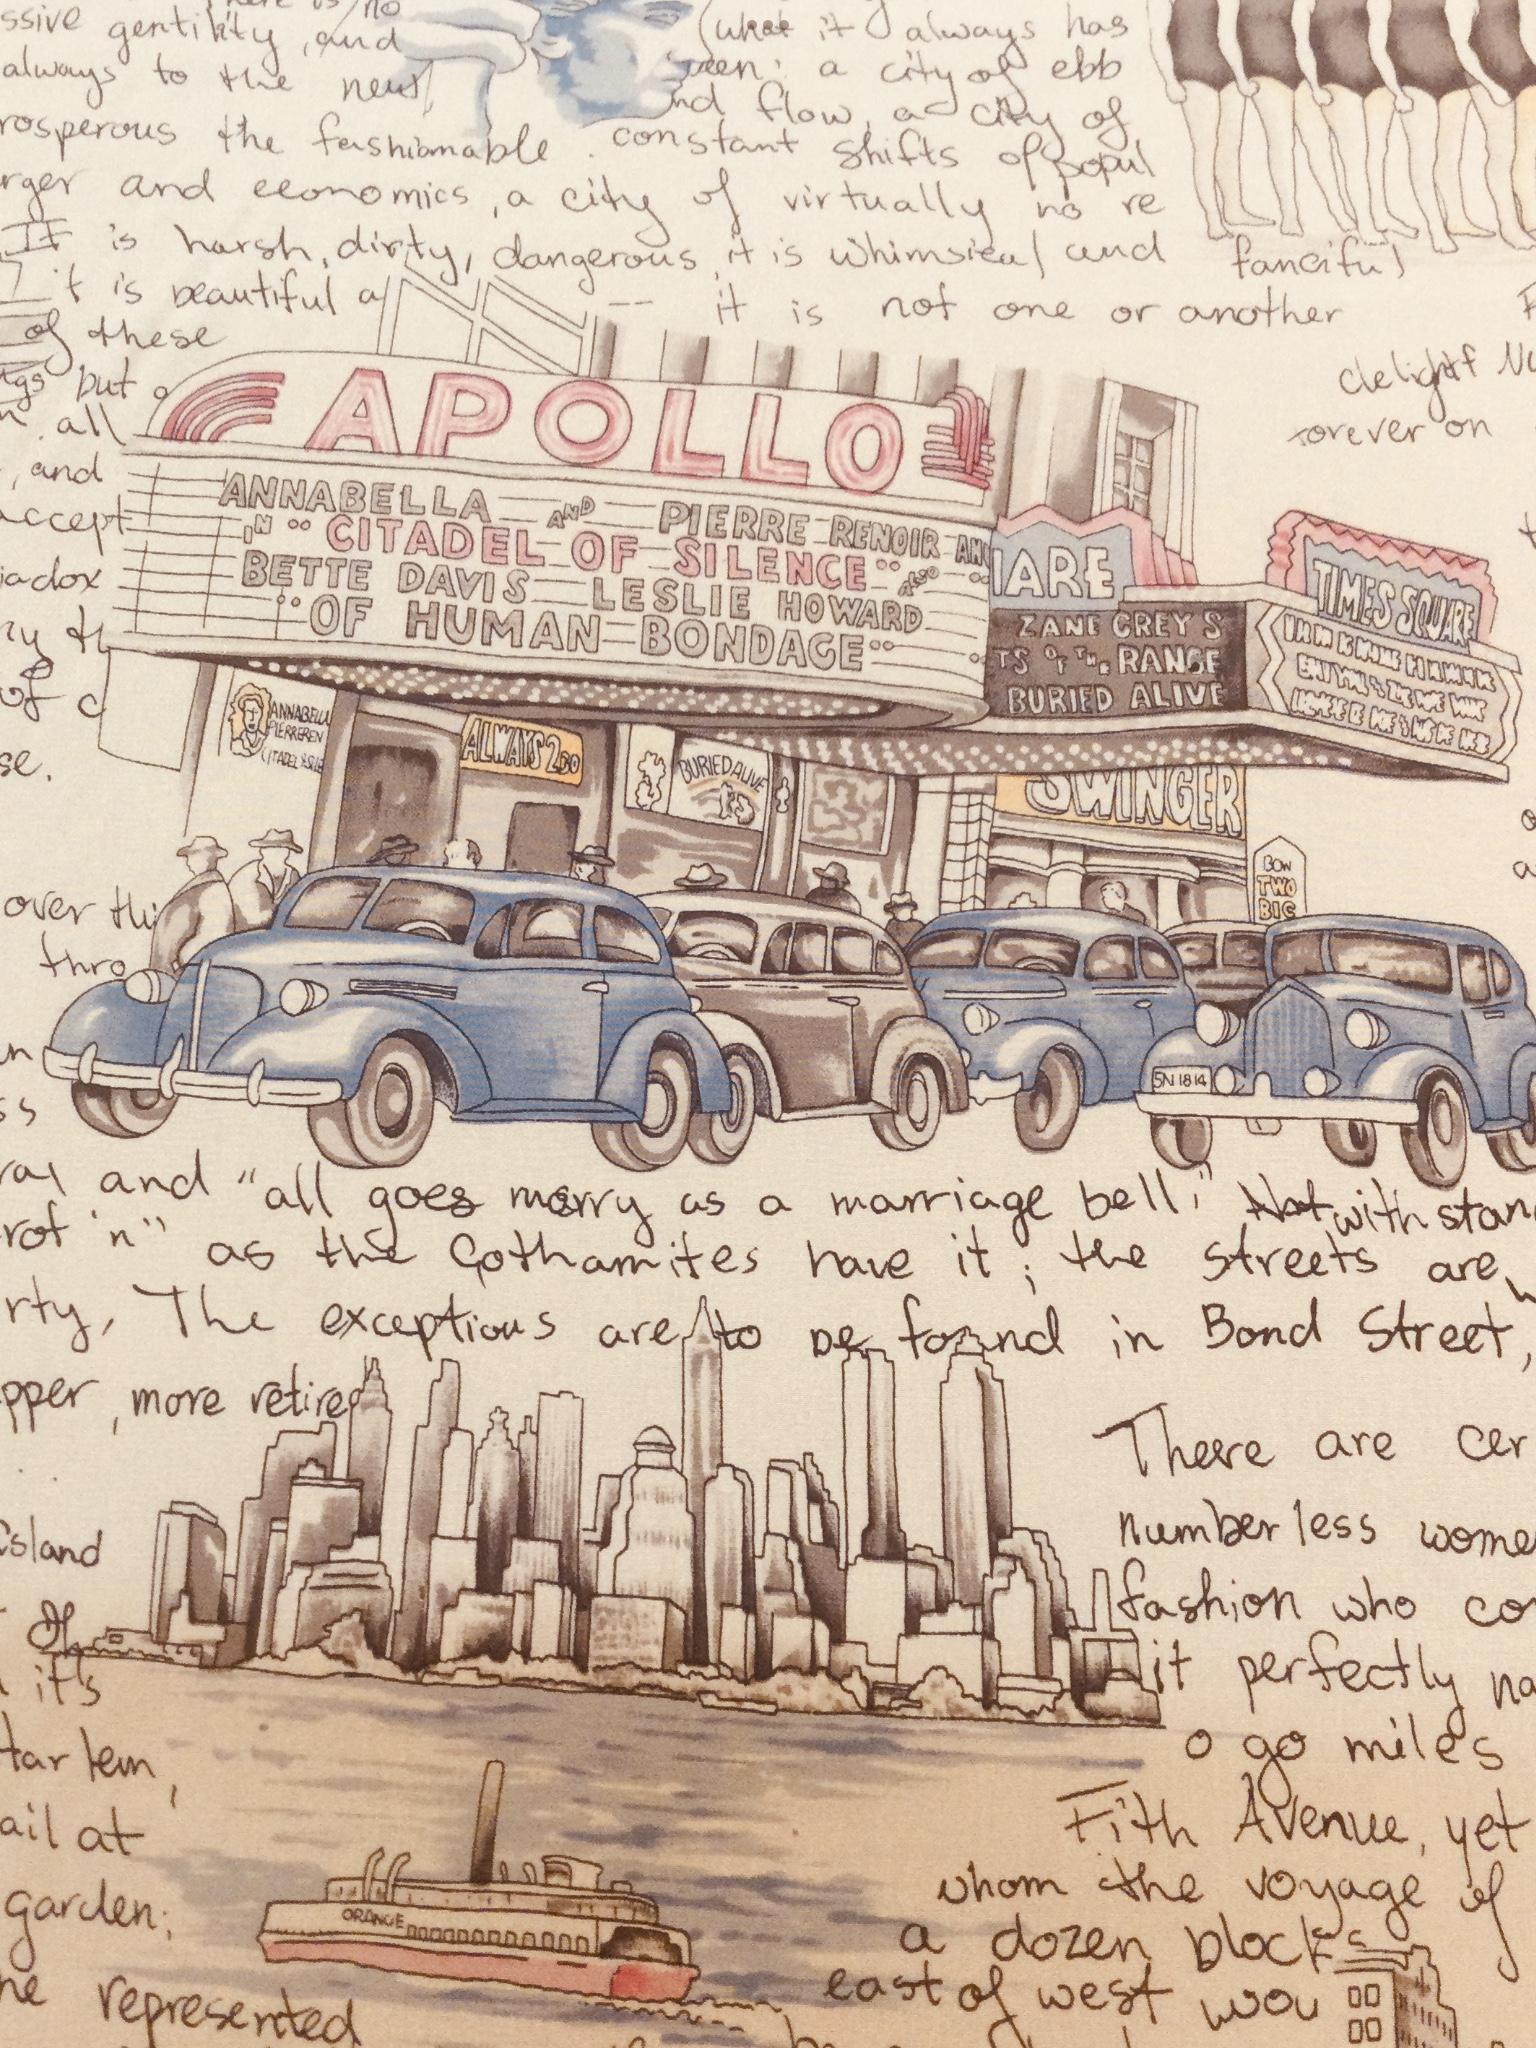 there is no
ssive gentility, and
always to the new,
rosperous the fashionable.
(what it always has
been: a city of ebb
and flow, a city of
constant shifts of popul
rger and economics, a city of virtually no re
It is harsh, dirty, dangerous, it is whimsical and fanciful
it is beautiful a -- it is not one or another
of these
ngs but
all
, and
accept
adox
of c
se.
delight
orever on
APOLLO
ANNABELLA AND PIERRE RENOIR AND
IN "CITADEL OF SILENCE" ALSO
BETTE DAVIS LESLIE HOWARD
"OF HUMAN BONDAGE"
UARE
ZANE GREY S
TS OF THE RANGE
BURIED ALIVE
TIMES SQUARE
ANNABELLA
PIERRE REN
CITADEL
ALWAYS 2
BURIED ALIVE
SWINGER
BOW
TWO
BIG
over thi
thro
SN1814
ss
ral and "all goes merry as a marriage bell." Notwithstan
rof 'n" as the Gothamites have it; the streets are
rty, The exceptions are to be found in Bond Street,
pper, more retired
Island
Of
it's
Harlem,
ail at
garden;
he represented
There are cer
numberless wome
fashion who co
it perfectly na
o go miles
Fith Avenue, yet
whom the voyage of
a dozen blocks
east of west wou
ORANGE